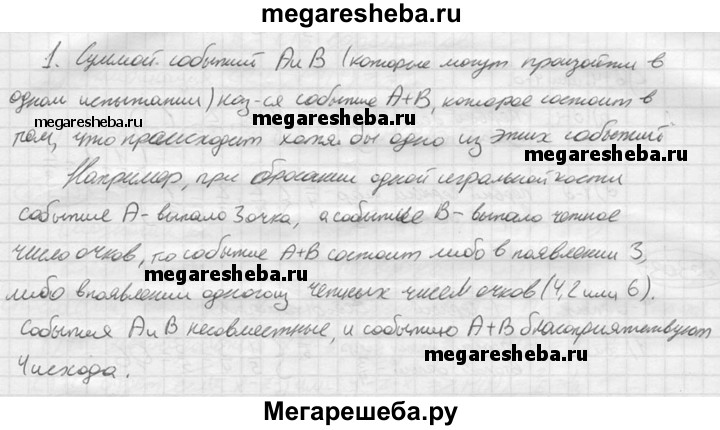 megaresheba.ru
1. Суммой событий А и В (которые могут произойти в
одном испытании) наз-ся событие А+В, которое состоит в
megaresheba.ru
megaresheba.ru
том, что происходит хотя бы одно из этих событий.
megaresheba.ru
Например, при бросании одной игральной кости
событие А - выпало 3 очка, а событие В - выпало четное
число очков, то событие А+В состоит либо в появлении 3,
megaresheba.ru
либо в появлении одного из четных чисел очков (4, 2 или 6).
События А и В несовместные, и событию А+В благоприятствуют
megaresheba.ru
4 исхода.
Мегарешеба.ру